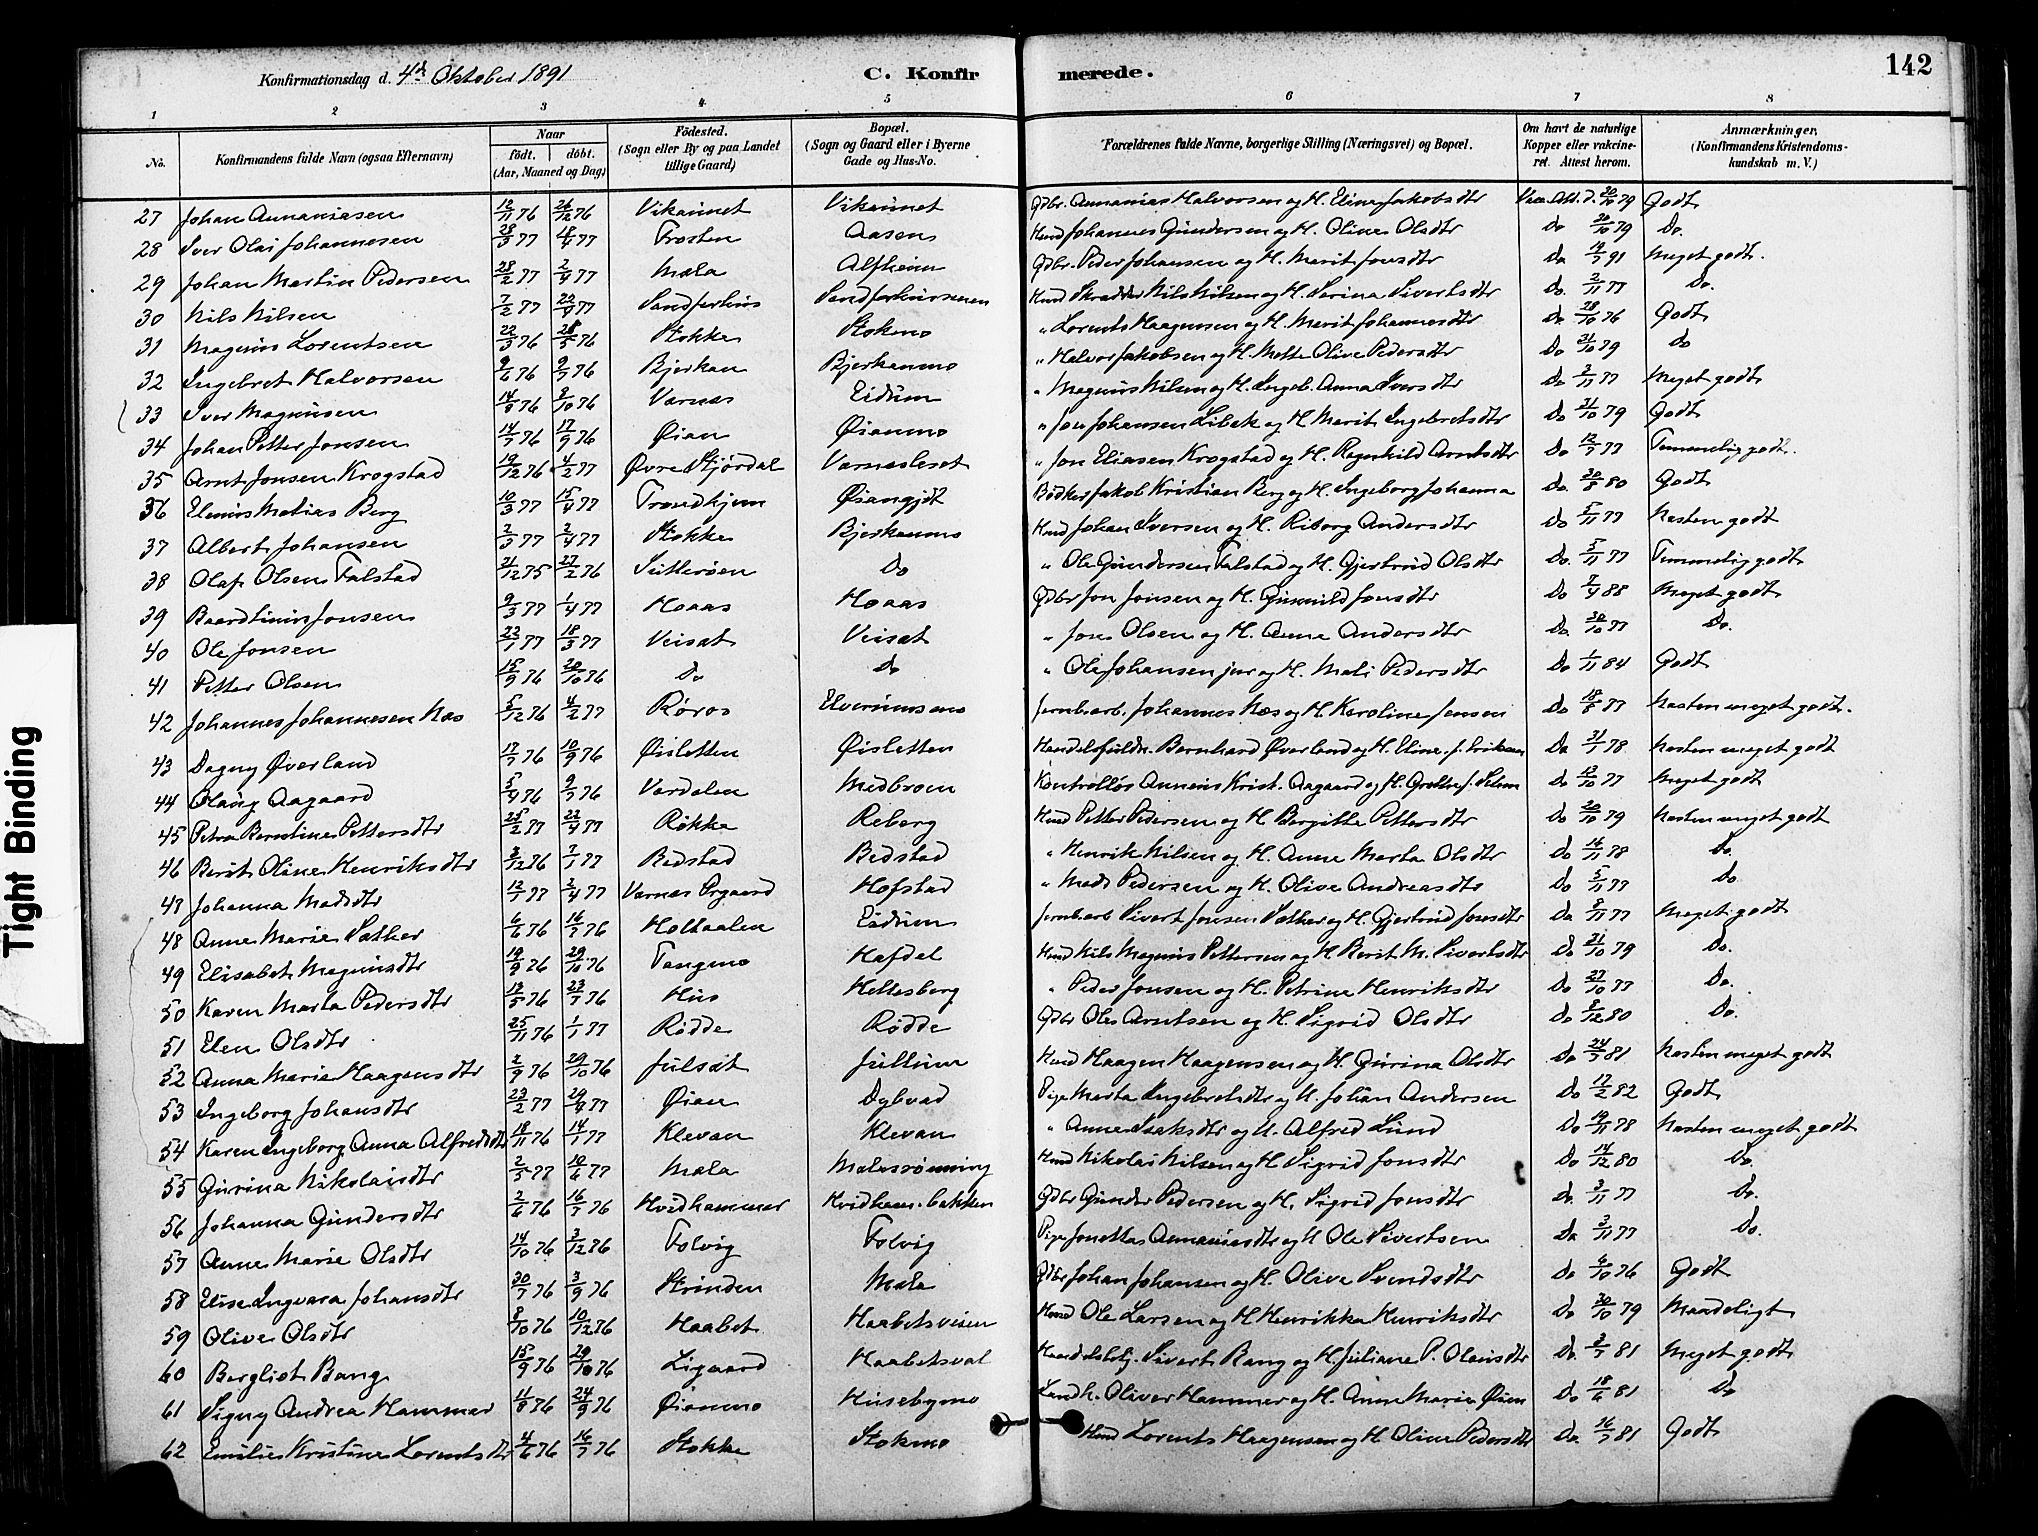 Konfirmationsdag d. 4d Oktober 1891 C. Konfirmerede. 142
1 2 3 4 5 6 7 8
No. Konfirmandens fulde Navn (ogsaa Efternavn) Naar født. døbt. (Aar, Maaned og Dag) Födested. (Sogn eller By og paa Landet tillige Gaard) Bopæl. (Sogn og Gaard eller i Byerne Gade og Hus-No. Forældrenes fulde Navne, borgerlige Stilling (Næringsvei) og Bopæl. Om havt de naturlige Kopper eller vakcineret. Attest herom. Anmærkninger. (Konfirmandens Kristendomskundskab m. V.)
27 Johan Annaniasen 12/11 76 26/12 76 Vikannet Vikannet Gdbr. Annanias Halvorsen og H. Eline Jakobsdtr Vacc. Att. d. 20/10 79 Godt
28 Iver Olai Johannesen 28/3 77 18/4 77 Frosten Aasen Hmd Johannes Gundersen og H. Oline Olsdtr Do 20/10 79 Do.
29 Johan Martin Pedersen 28/2 77 2/4 77 Mæla Alfheim Gdbr. Peder Johansen og H. Marit Jonsdtr Do 14/7 91 Meget godt.
30 Nils Nilsen 7/2 77 22/4 77 Sandferhus Hmd Skrædder Nils Nilsen og H. Serina Sivertsdtr Do. 2/11 77 Do.
31 Magnus Lorentsen 22/3 76 28/5 76 Stokke Stokmo " Lorents Haagensen og H. Marit Johannesdtr Do 28/10 76 Godt
32 Ingebret Halvorsen 9/6 76 9/7 76 Bjerkan Bjerkanmo " Halvor Jakobsen og H. Mette Olive Pedersdtr Do 31/10 79 do
33 Iver Magnusen 14/9 76 8/10 76 Værnes Eidum " Magnus Nilsen og H. Ingeb. Anna Iversdtr Do 2/11 77 Meget godt
34 Johan Petter Jonsen 14/7 76 17/9 76 Øian Øianmo " Jon Johansen Libek og H Marit Ingebretsdtr Do 31/10 79 Godt
35 Arnt Jonsen Krogstad 19/12 76 4/2 77 Øvre Stjørdal Værnesleret " Jon Eliasen Krogstad og H. Ragnhild Arntsdtr Do 12/7 77 Temmelig godt.
36 Elenius Matias Berg 10/3 77 15/4 77 Trondhjem Øiangjdt Bödker Jakob Kristian Berg og H. Ingeborg Johanna Do. 20/8 80 Godt
37 Albert Johansen 2/3 77 2/4 77 Stokke Bjerkanmo Hmd Johan Iversen og H. Riborg Andersdtr Do 5/11 77 Næsten godt
38 Olaf Olsen Falstad 21/12 75 27/2 76 Sutterøen Do " Ole Gundersen Falstad og H. Gjertrud Olsdtr Do. 5/11 77 Temmelig godt
39 Baard Jonsen 9/3 77 1/4 77 Hoaas Hoaas Gdbr Jon Jonsen og H. Gunhild Jonsdtr Do 7/4 88 Meget godt
40 Ole Jonsen 22/1 77 18/3 77 Veisæt Veisæt " Jon Olsen og H. Anne Andersdtr Do. 30/10 77 Do.
41 Petter Olsen 15/9 76 20/10 76 Do Do " Ole Johansen jun og H. Mali Pedersdtr Do 1/11 84 Godt
42 Johannes Johannesen Næs 5/12 76 4/2 77 Røros Elverumsmo Jernbarb. Johannes Næs og H. Karoline Jensen Do 18/8 77 Næsten meget godt.
43 Dagny Øverland 17/7 76 10/9 76 Øisletten Øisletten Handelsfuldm. Bernhard Øverland og H. Eline f. Eriksen Do 31/7 78 Næsten meget godt
44 Olaug Aagaard 5/4 76 9/7 76 Værdalen Medbroen Kontrollør Annens Krist. Aagaard og H. Grethe f. Selnm Do 13/10 77 Meget godt
45 Petra Berntine Pettersdtr 25/2 77 22/4 77 Røkke Reberg Hmd Petter Pedersen og H Bergitte Pettersdtr Do 20/10 79 Næsten meget godt
46 Berit Oline Henriksdtr 3/12 76 7/1 77 Bedstad Bedstad " Henrik Nilsen og H. Anne Marta Olsdtr Do 16/11 78 Do.
47 Johanna Madsdtr 12/1 77 2/4 77 Værnes Prgaard Hofstad " Mads Pedersen og H. Olive Andreasdtr Do 5/11 77 Do
48 Anne Marie Sæther 6/6 76 16/7 76 Holtaalen Eidum Jernbarb Sivert Jonsen Sæther og H. Gjertrud Jonsdtr Do. 8/11 77 Meget godt
49 Elisabet Magnusdtr 19/9 76 29/10 76 Tangmo Hafdel Hmd Nils Magnus Pettersen og H Berit M. Sivertsdtr Do 21/10 79 Do.
50 Karen Marta Pedersdtr 12/5 76 23/7 76 Hus Hellesberg " Peder Jonsen og H. Petrine Henriksdtr Do 27/10 77 Do.
51 Elen Olsdtr 25/11 76 1/1 77 Rødde Rødde Gdbr Ole Arntsen og H. Sigrid Olsdtr Do 8/12 80 Do.
52 Anna Marie Haagensdtr 2/9 76 29/10 76 Julsæt Jullum Hmd Haagen Haagensen og H. Gurina Olsdtr Do 24/5 81 Næsten meget godt
53 Ingeborg Johansdtr 23/2 77 29/4 77 Øian Dybvad Pige Marta Ingebretsdtr og U. Johan Andersen Do 17/2 82 Godt
54 Karen Ingeborg Anna Alfredsdtr 18/11 76 14/1 77 Klevan Klevan " Anne Isaksdtr og U. Alfred Lund Do 19/11 78 Næsten meget godt
55 Gurina Nikolaisdtr 2/5 77 10/6 77 Mæla Mælesrønning Hmd Nikolai Nilsen og H Sigrid Jonsdtr Do 14/12 80 Do.
56 Johanna Gundersdtr 2/6 76 16/7 76 Hvidhammer Hvidham.bakken Gdbr Gunder Pedersen og H. Sigrid Jonsdtr Do. 3/11 77 Do.
57 Anne Marie Olsdtr 14/10 76 3/12 76 Folvig Folvig Pige Jonetta Annaniasdtr og U Ole Sivertsen Do 3/11 77 Do.
58 Elise Ingvara Johansdtr 30/7 76 3/9 76 Strinden Mæla Gdbr Johan Johansen og H. Olive Svendsdtr Do 6/10 76 Godt
59 Olive Olsdtr 8/10 76 10/12 76 Haabet Haabetsveien Hmd Ole Larsen og H Henrikka Henriksdtr Do 30/10 79 Maadeligt
60 Bergliot Bang 15/9 76 29/10 76 Ligaard Haabetsval Handelsbetj. Sivert Bang og H. Juliane P. Olausdtr Do. 2/7 81 Meget godt
61 Signy Andrea Hammer 11/8 76 24/9 76 Øianmo Husebymo Landh. Oliver Hammer og H. Anne Marie Øien Do 18/6 81 Do
62 Emilie Kristine Lorentsdtr 4/6 76 16/7 76 Stokke Stokmo Hmd Lorents Haagensen og H Oline Pedersdtr Do. 16/7 81 Godt
Tight Binding